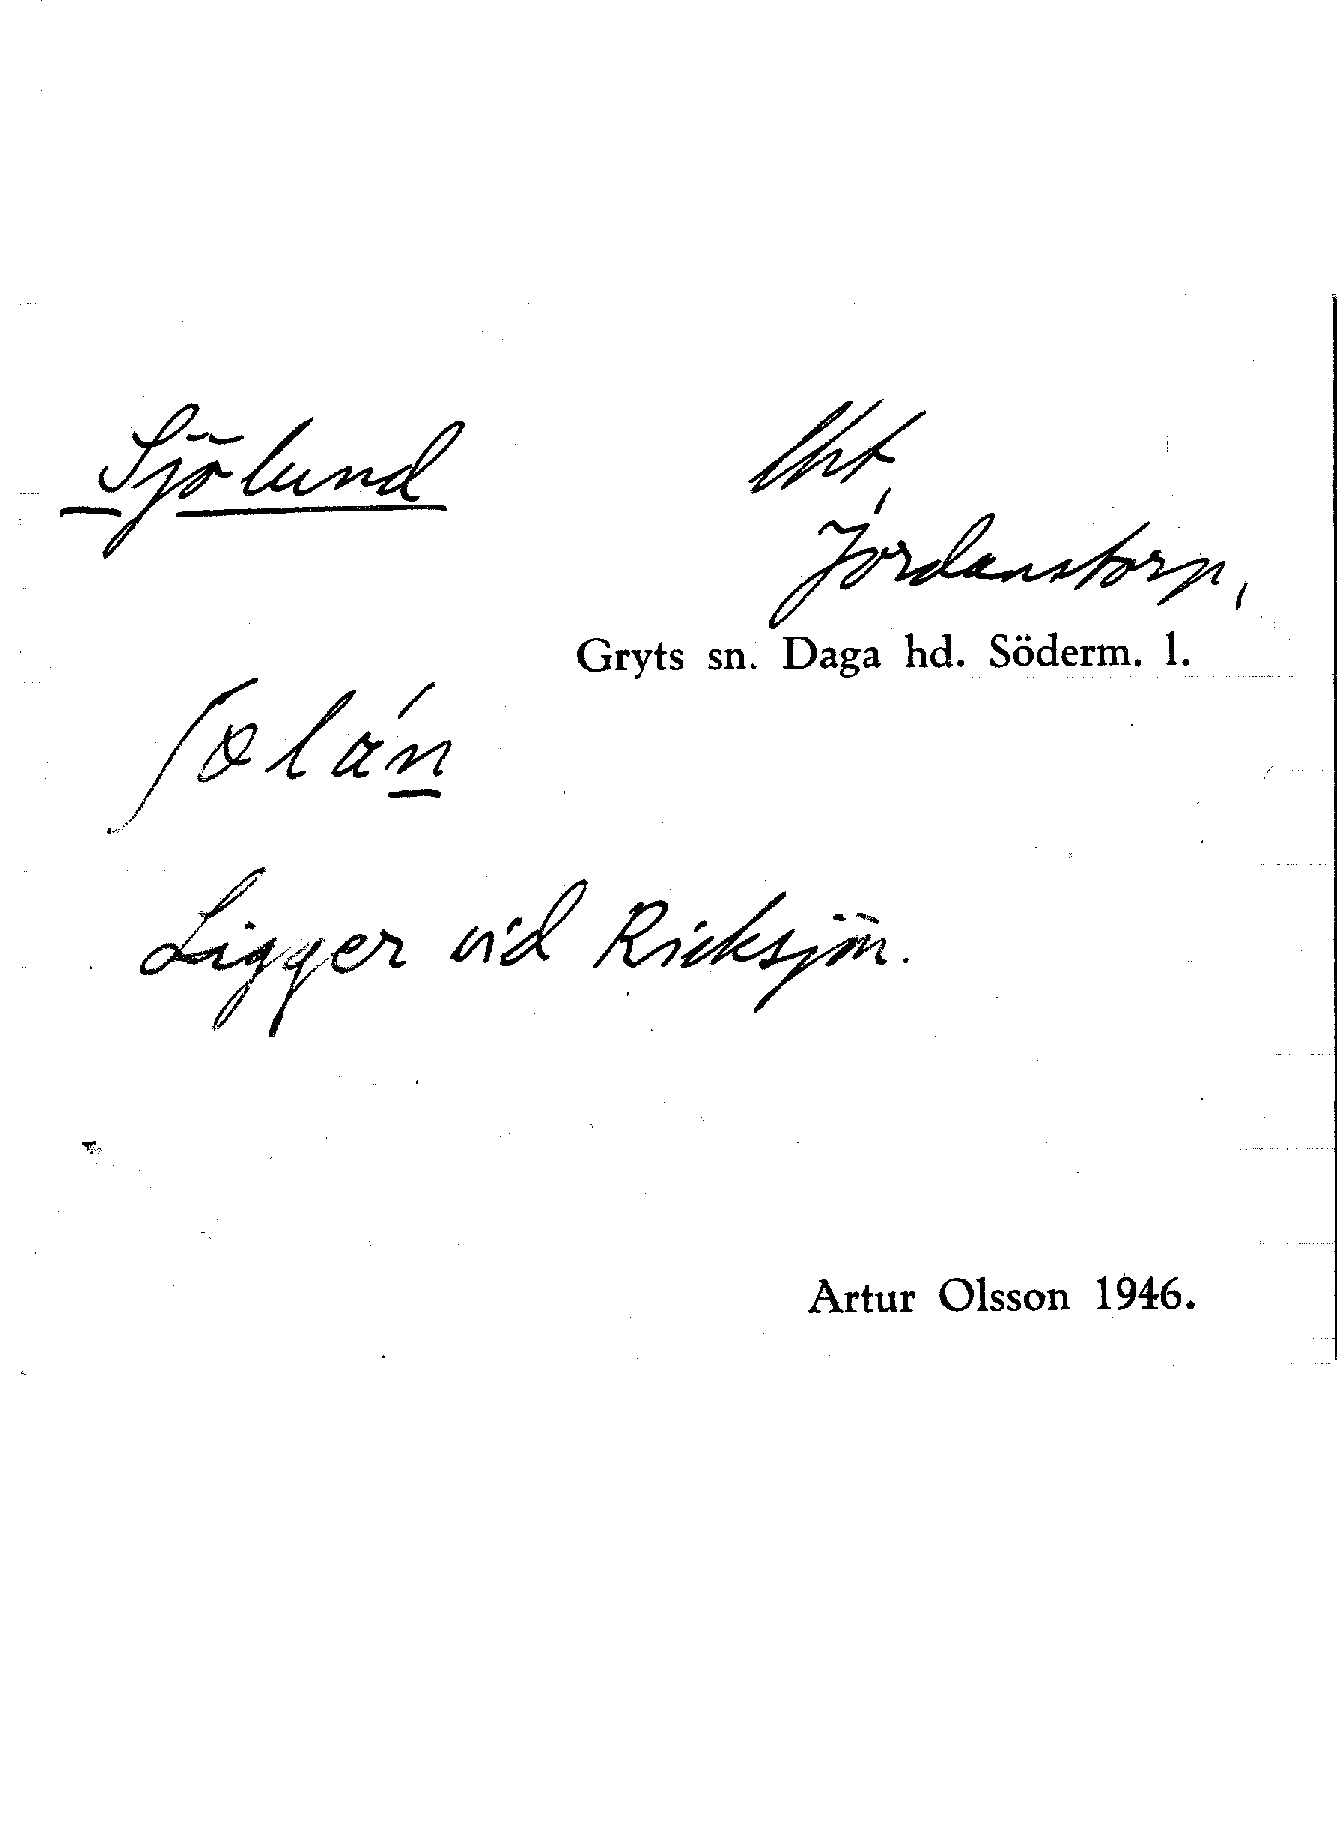 Sjölund
lht,
Jordanstorp,
Gryts sn. Daga hd. Söderm. l.
Ligger vid Ricksjön.
Artur Olsson 1946.